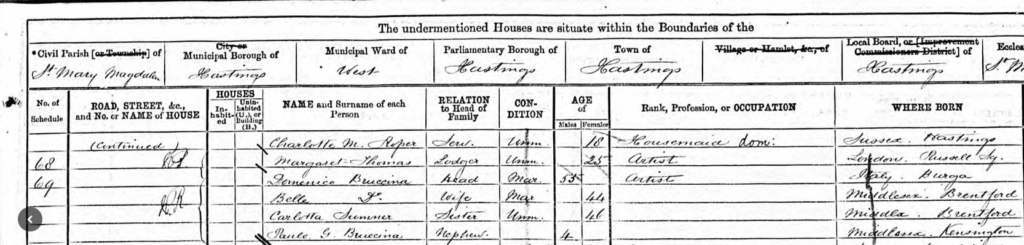 The undermentioned Houses are situate within the Boundaries of the
*Civil Parish [or Township] of City or Municipal Borough of Municipal Ward of Parliamentary Borough of Town of Village or Hamlet, &c., of Local Board, or [Improvement Commissioners District] of Eccles
St. Mary Magdalen Hastings West Hastings Hastings Hastings St. M
No. of Schedule ROAD, STREET, &c., and No. or NAME of HOUSE HOUSES In-habit-ed Unin-habited (U.), or Building (B.) NAME and Surname of each Person RELATION to Head of Family CON-DITION AGE of Males Females Rank, Profession, or OCCUPATION WHERE BORN
(Continued) Charlotte M. Roper Serv. Unm. 18 Housemaid dom: Sussex Hastings
68 Margaret Thomas Lodger Unm. 25 Artist London Russell Sq.
69 Domenico Bruccina Head Mar. 55 Artist Italy
Bella Do. Wife Mar 44 Middlesex Brentford
Carlotta Sumner Sister Unm. 46 Middlx. Brentford
Paulo G. Bruccina Nephew 4 Middlesex Kensington